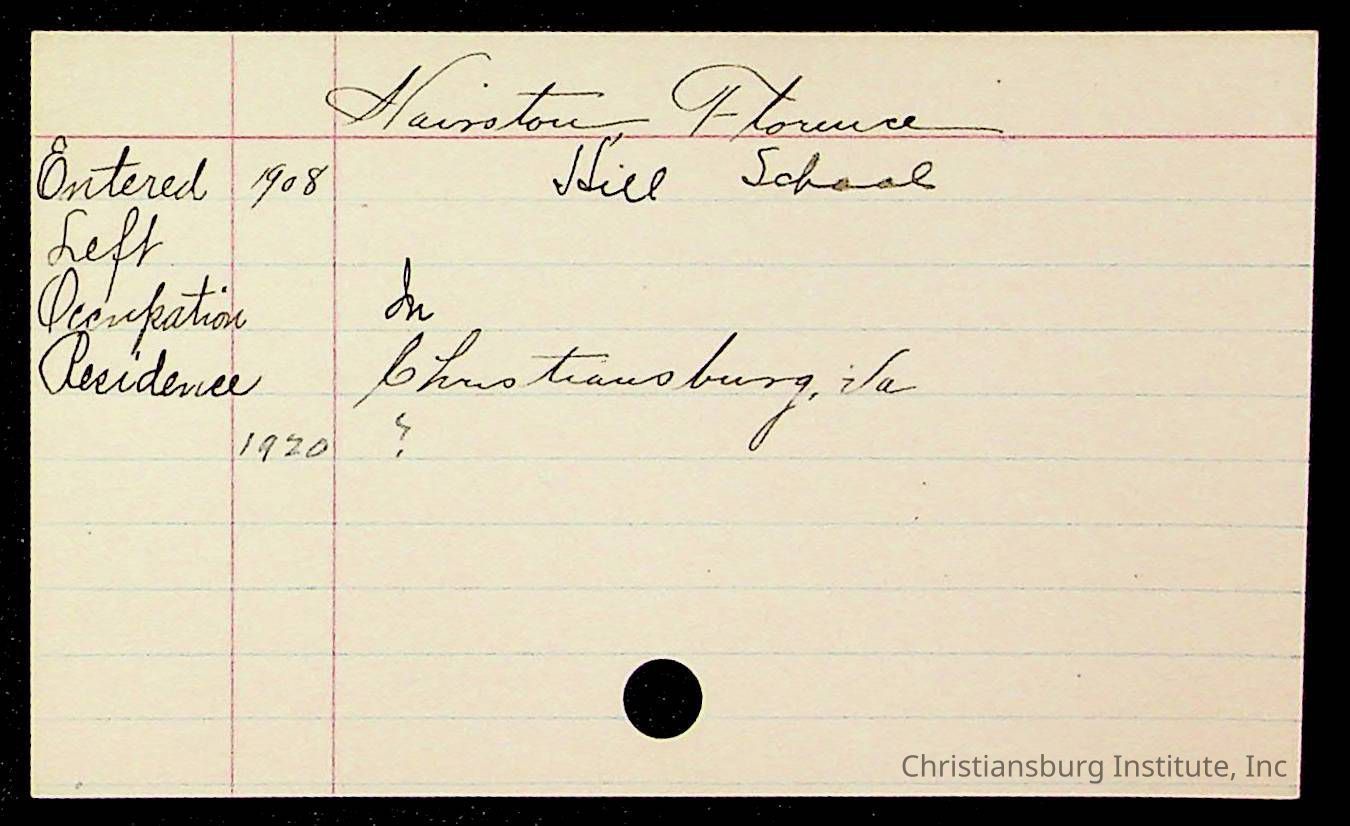 Hairston, Florence
Entered 1908 Hill School
Left
Occupation In
Residence Christiansburg, Va
1920 ?
Christiansburg Institute, Inc